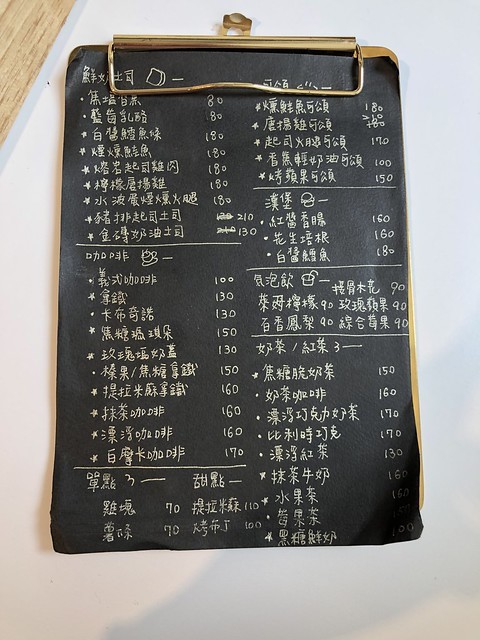 鮮奶土司
焦塩香蕉 80
藍莓乳酪 80
白醬鱈魚條 180
煙燻鮭魚 180
熔岩起司雞肉 180
檸檬唐揚雞 180
水波蛋煙燻火腿 180
豬排起司土司 210
金磚奶油土司 130
咖啡
義式咖啡 100
拿鐵 130
卡布奇諾 130
焦糖瑪琪朵 150
玫瑰塩奶蓋 130
榛果/焦糖拿鐵 150
提拉米蘇拿鐵 160
抹茶咖啡 160
漂浮咖啡 160
白摩卡咖啡 170
單點
雞塊 70
薯條 70
甜點
提拉米蘇 110
烤布丁 100
可頌
燻鮭魚可頌 180
唐揚雞可頌
起司火腿可頌 170
香蕉輕奶油可頌 100
烤蘋果可頌 150
漢堡
紅醬香腸 160
花生培根 160
白醬鱈魚 180
氣泡飲 接骨木花 90
萊姆檸檬 90 玫瑰蘋果 90
百香鳳梨 90 綜合莓果 90
奶茶/紅茶
焦糖脆奶茶 150
奶茶咖啡 160
漂浮巧克力奶茶 170
比利時巧克 170
漂浮紅茶 130
抹茶牛奶 160
水果茶 160
莓果茶
黑糖鮮奶 100